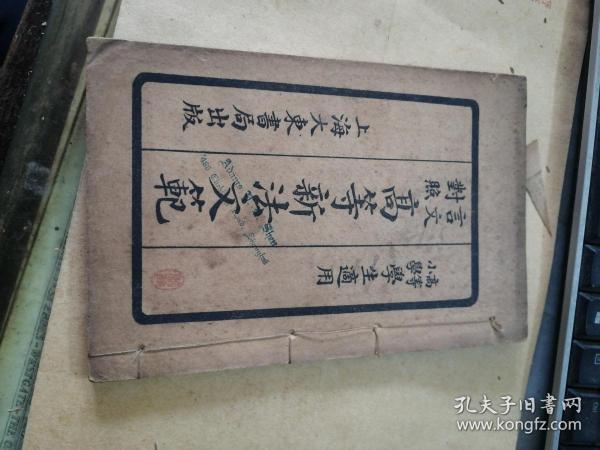 高等小學學生適用
言文對照高等新法文範
上海大東書局出版
孔夫子旧书网
www.kongfz.com